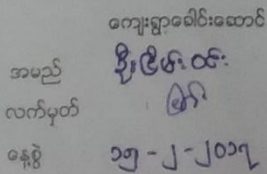 ကျေးရွာခေါင်းဆောင်
အမည် ဦးငြိမ်းဝင်း
လက်မှတ်
နေ့စွဲ ၁၅-၂-၂၀၁၇